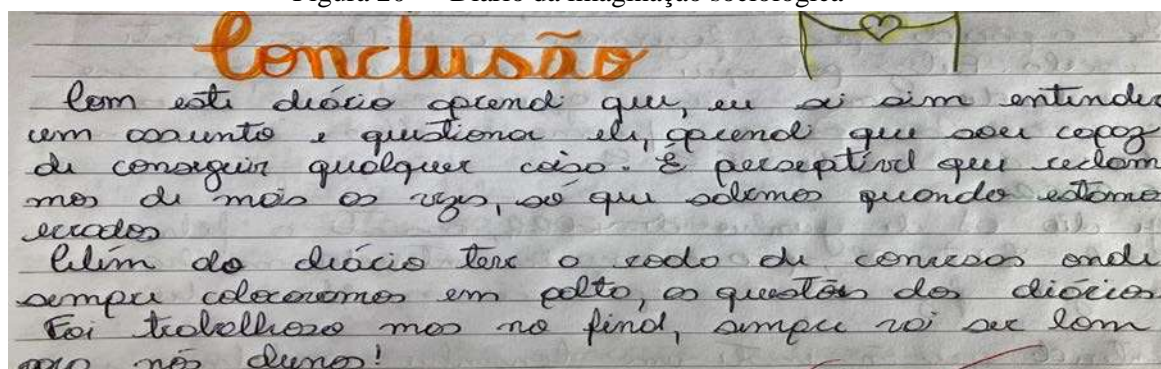 Figura 20 — Diário da imaginação sociológica
Conclusão
Com este diário aprendi que, eu sei sim entender
um assunto e questionar ele, aprendi que sou capaz
de conseguir qualquer coisa. É perseptível que reclam
mos de mais as vezes, só que sabemos quando estamo
errados
Além do diário teve a roda de conversas onde
sempre colocaramos em polto, as questões dos diários.
Foi trabalhoso mas no final, sempre vai ser bom
nós alunos!